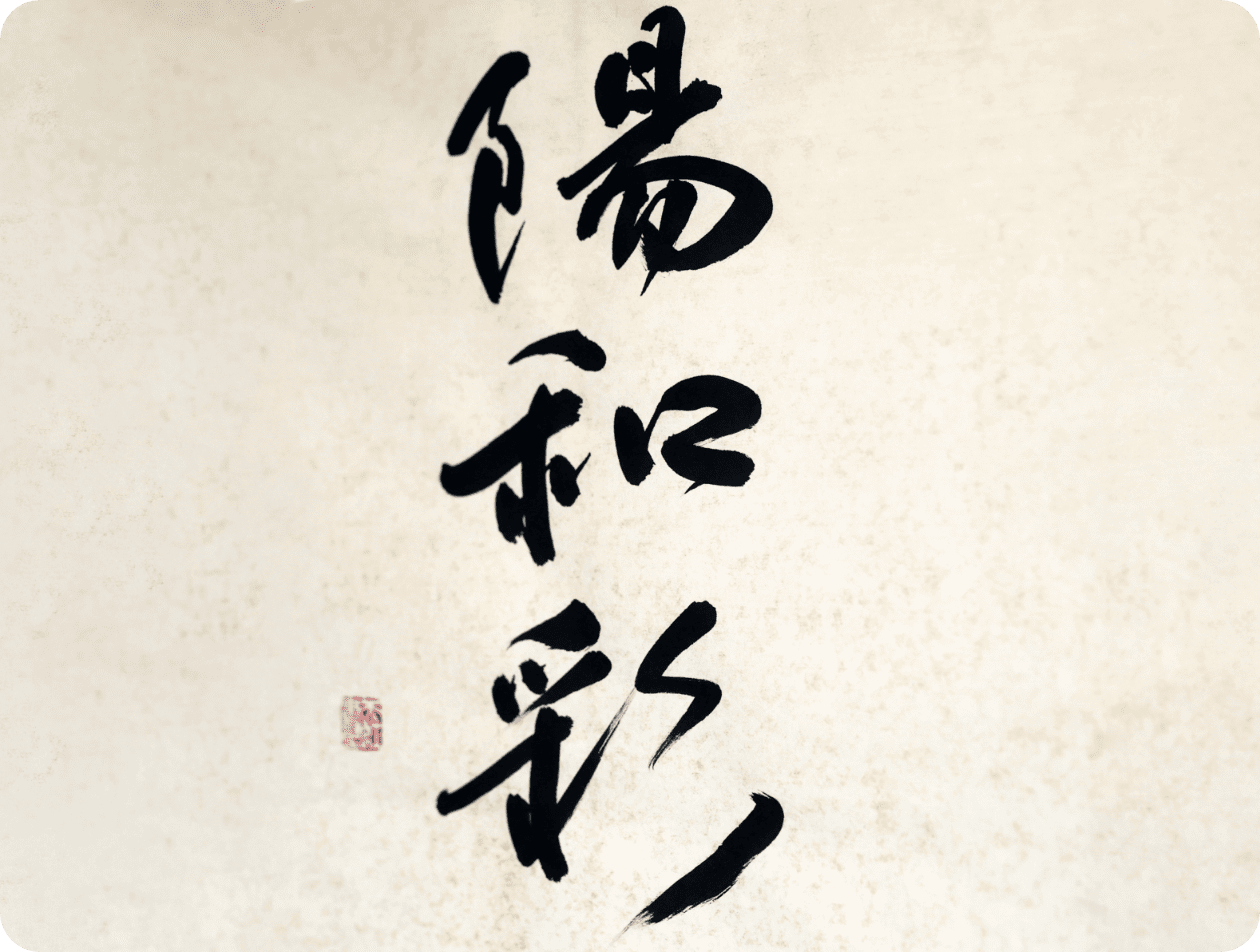 陽和彩